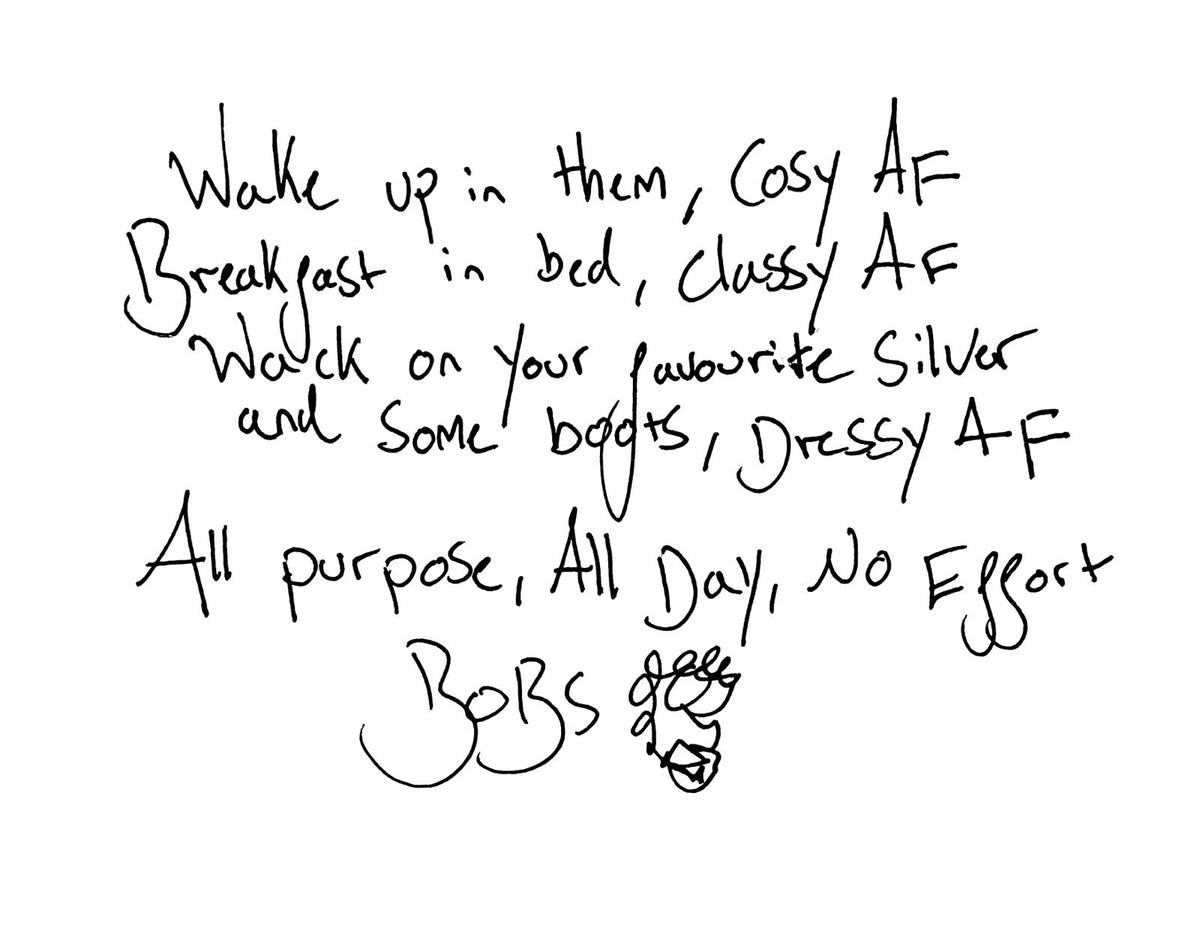 Wake up in them, Cosy AF
Breakfast in bed, Classy AF
Wack on your favourite Silver
and some boots, Dressy AF
All purpose, All Day, No Effort
BoBs